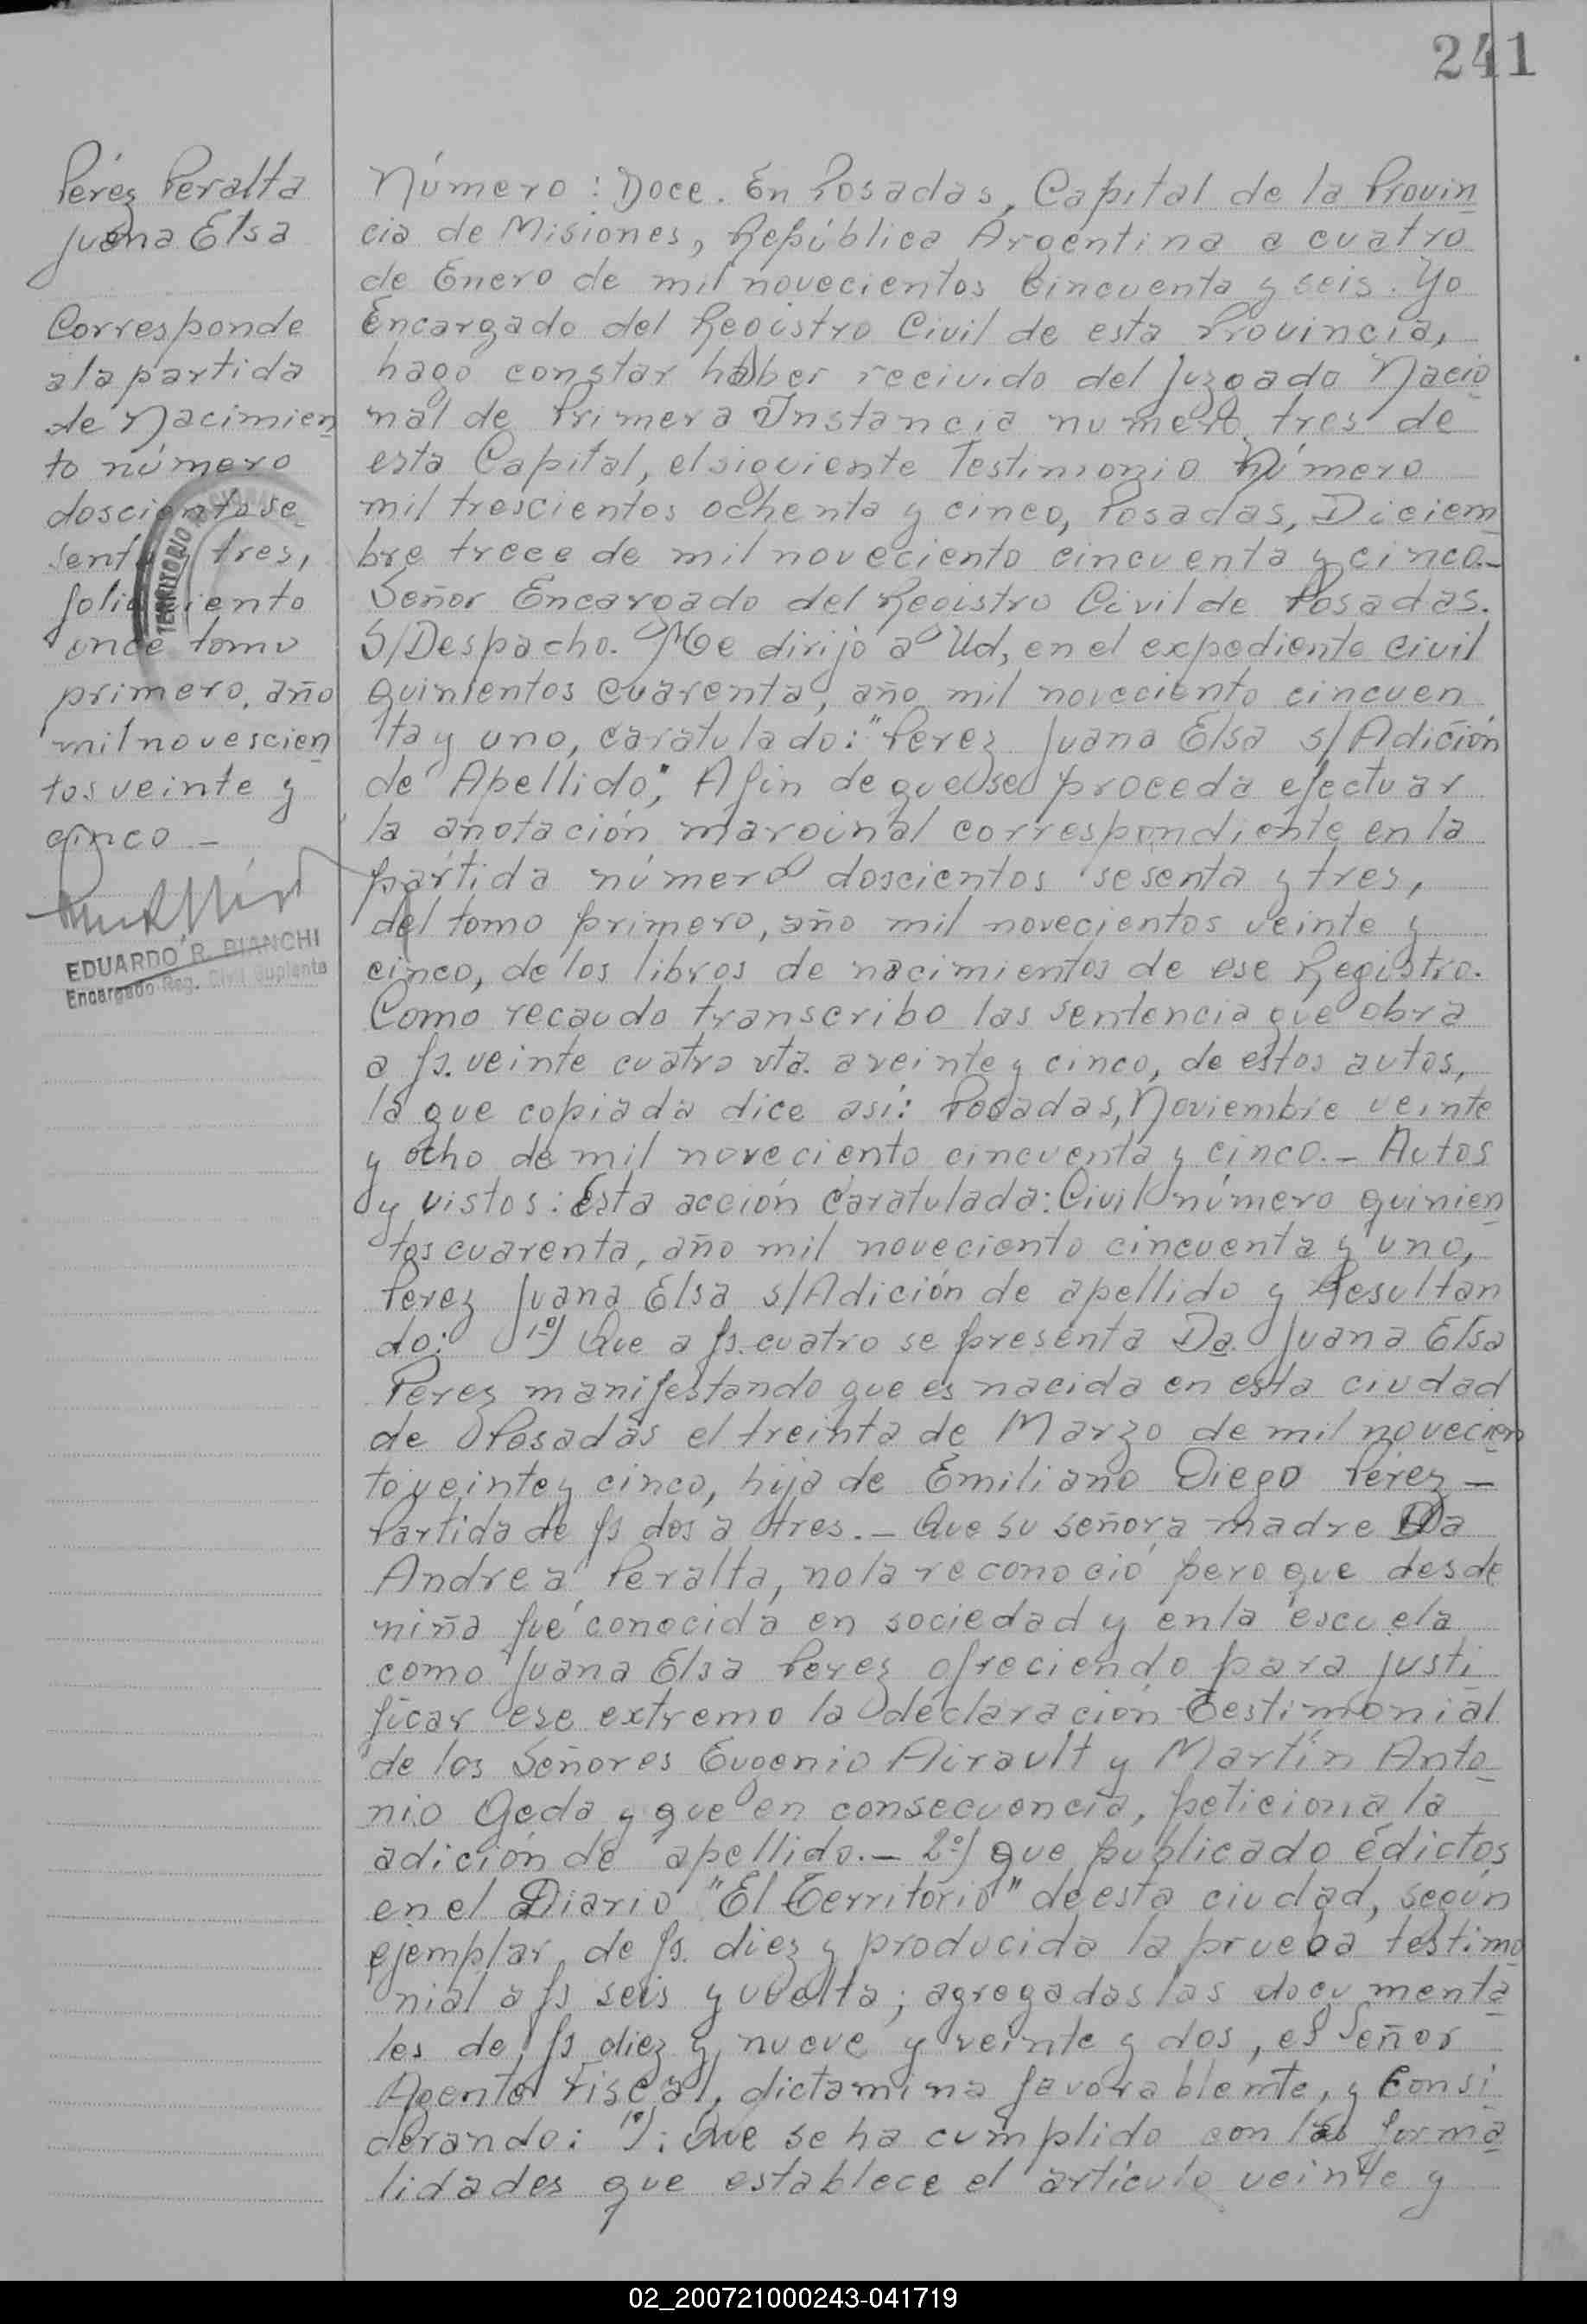 241
Pérez Peralta
Juana Elsa
Corresponde
a la partida
de Nacimien
to número
doscientos se
senta y tres,
folio ciento
once tomo
primero, año
mil novescien
tos veinte y
cinco -
EDUARDO R. BIANCHI
Encargado Reg. Civil Suplente
TERRITORIO
Número: Doce. En Posadas, Capital de la Provin
cia de Misiones, República Argentina a cuatro
de Enero de mil novecientos Cincuenta y seis. Yo
Encargado del Registro Civil de esta Provincia,
hago constar haber recivido del Juzgado Nacio
nal de Primera Instancia numero tres de
esta Capital, el siguiente Testimonio Número
mil trescientos ochenta y cinco, Posadas, Diciem
bre trece de mil noveciento cincuenta y cinco.-
Señor Encargado del Registro Civil de Posadas.
S/Despacho. Me dirijo a Ud, en el expediente civil
quinientos cuarenta, año mil noveciento cincuen
ta y uno, caratulado: "Perez Juana Elsa s/Adición
de Apellido", A fin de que se proceda efectuar
la anotación marginal correspondiente en la
partida número doscientos sesenta y tres,
del tomo primero, año mil novecientos veinte y
cinco, de los libros de nacimientos de ese Registro.
Como recaudo transcribo las sentencia que obra
a fs. veinte cuatro vta. a veinte y cinco, de estos autos,
la que copiada dice así: Posadas, Noviembre veinte
y ocho de mil noveciento cincuenta y cinco.- Autos
y vistos: Esta acción Caratulada: Civil número quinien
tos cuarenta, año mil noveciento cincuenta y uno,
Perez Juana Elsa s/Adición de apellido y Resultan
do: 1º) Que a fs. cuatro se presenta Da. Juana Elsa
Perez manifestando que es nacida en esta ciudad
de Posadas el treinta de Marzo de mil novecien
to veinte y cinco, hija de Emiliano Diego Pérez -
Partida de fs dos a tres.- Que su señora madre Da
Andrea Peralta, no la reconoció pero que desde
niña fué conocida en sociedad y en la escuela
como Juana Elsa Perez ofreciendo para justi
ficar ese extremo la declaración testimonial
de los Señores Eugenio Airault y Martín Anto
nio Geda y que en consecuencia, peticiona la
adición de apellido.- 2º) que publicado édictos
en el Diario "El Territorio" de esta ciudad, según
ejemplar de fs. diez y producida la prueba testimo
nial a fs seis y vuelta; agregadas las documenta
les de fs diez y nueve y veinte y dos, el Señor
Agente Fiscal, dictamina favorablemte, y Consi
derando: 1º): Que se ha cumplido con las forma
lidades que establece el artículo veinte y
02_200721000243-041719